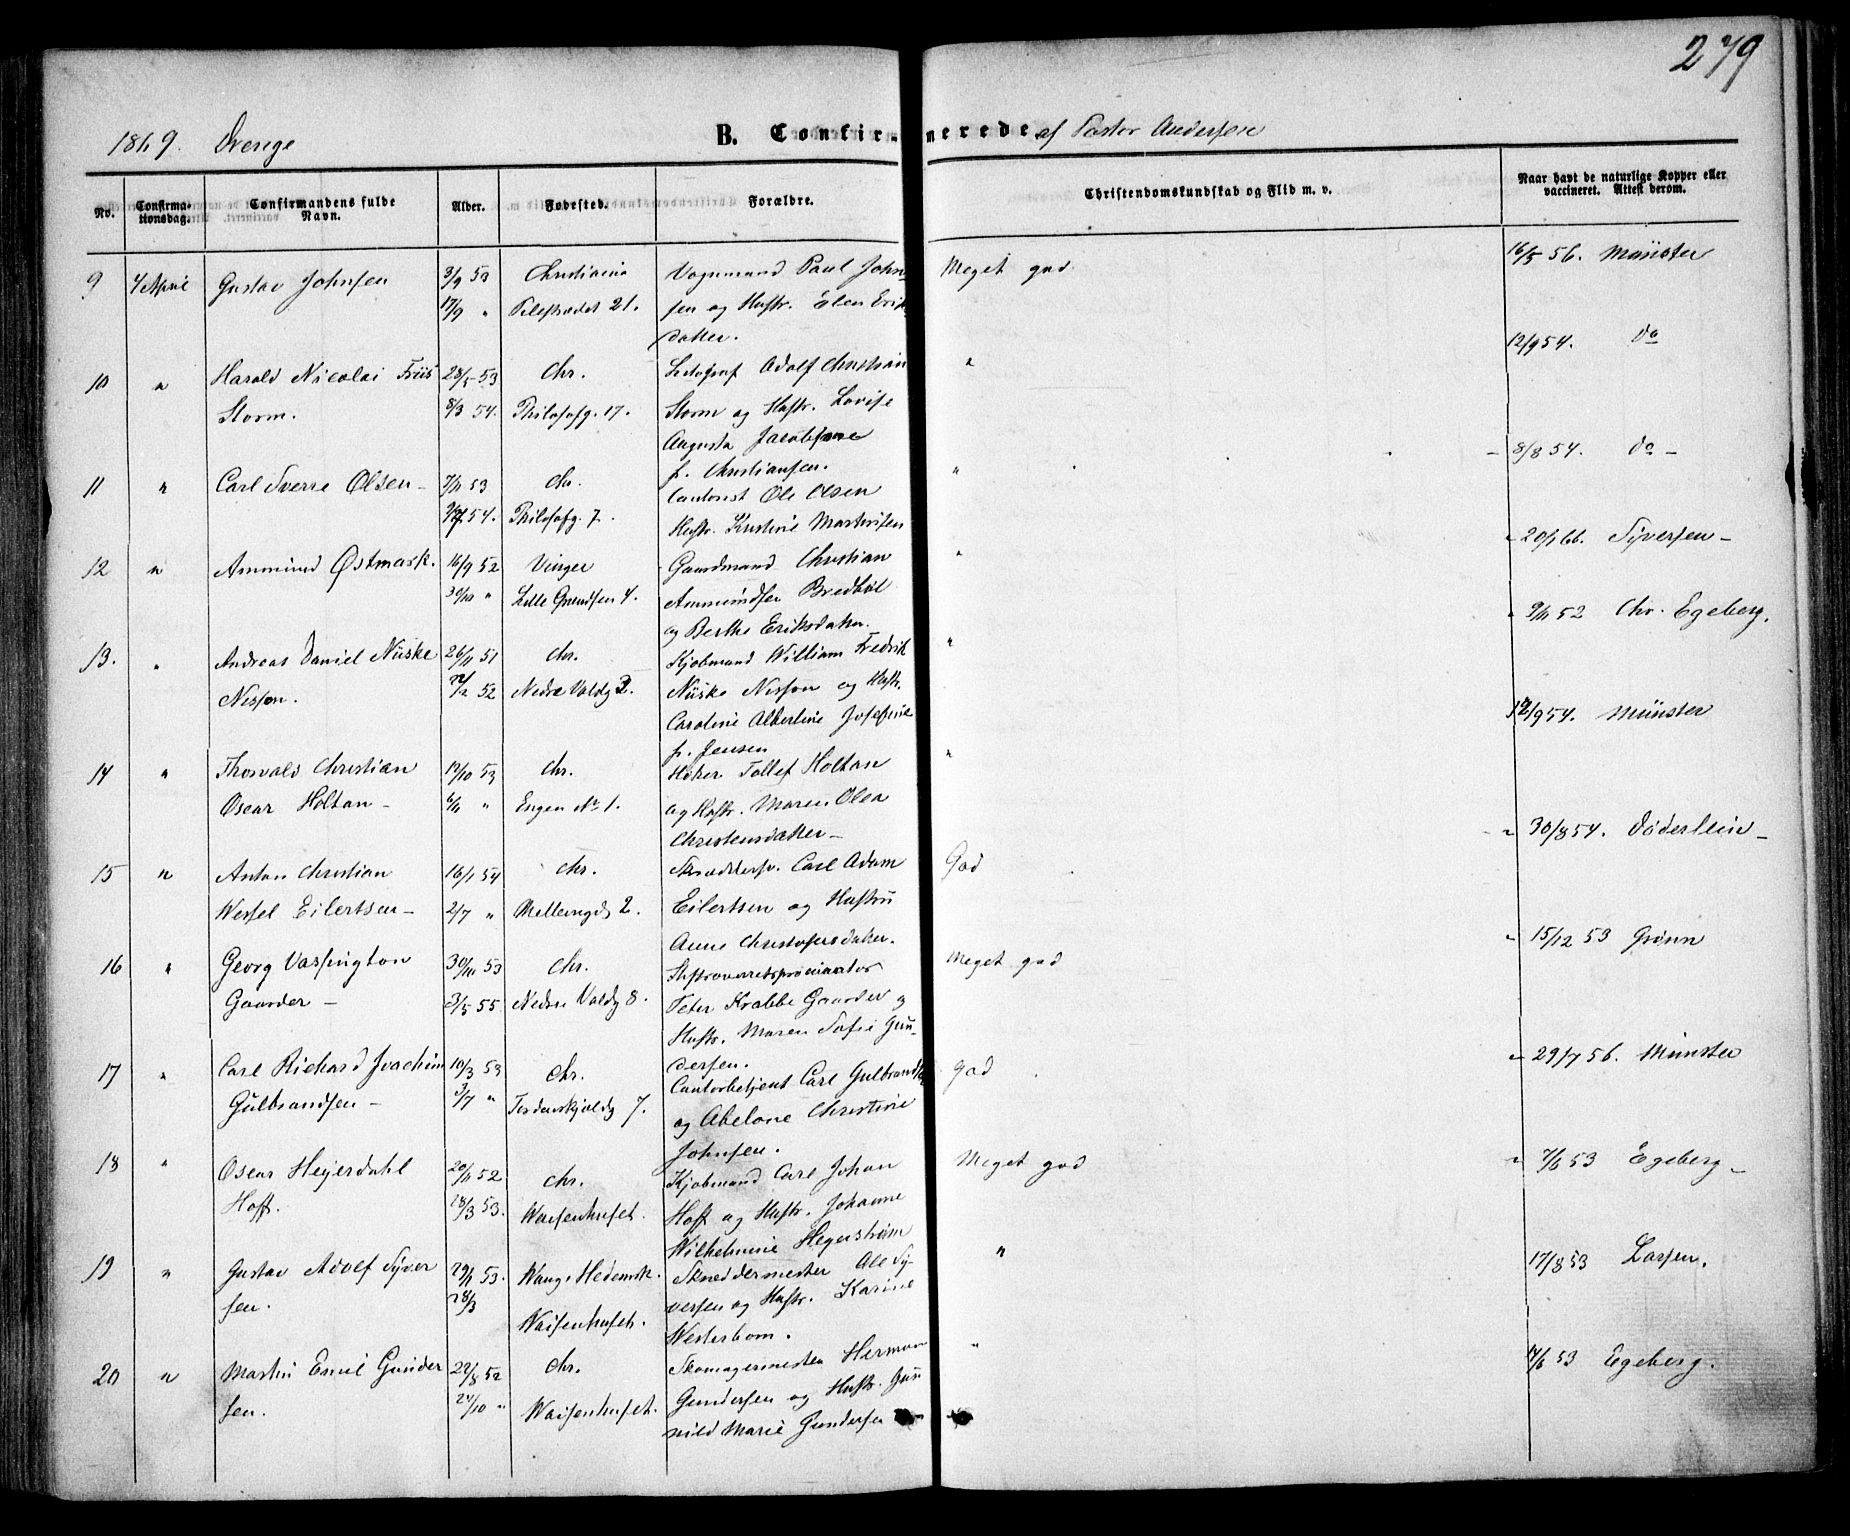 279
1869. Drenge B. Confirmerede af Pastor Andersen
No. Confirmationsdag. Confirmandens fulde Navn. Alder. Fødested. Forældre. Christendomskundskab og Flid m. v. Naar havt de naturlige Kopper eller vaccineret. Attest derom.
9 4 April Gustav Johnsen 3/9 53 Christiania Vognmand Paul John- Meget god 16/5 56. Münster
17/9 " Pilestrædet 21. sen og Hustr. Elen Erik
datter.
10 " Harald Nicolai Friis 28/5 53 Chr. Litograf Adolf Christian " 12/9 54. do
Storm. 8/3 54. Philosofg. 17. Storm og Hustr. Lovise
Augusta Jacobsine
f. Christiansen.
11 " Carl Sverre Olsen - 7/11 53 Chr. Cantorist Ole Olsen " - 8/8 54. do -
54. Philosofg. 7. Hustr. Kristine Martinsen
12 " Ammund Østmark. 16/9 52 Vinger Gaardmand Christian " " 20/1 66. Syversen -
30/10 " Lille Grændsen 4. Ammundsen Bredbøl
og Berthe Eriksdatter.
13. " Andreas Daniel Nüske 26/11 51 Chr. Kjøbmand William Fredrik " " 9/11 52 Chr. Egeberg.
Nissen. 22/2 52 Nedre Voldg 2. Nüske Nissen og Hustr.
Caroline Albertine Josefine
f. Jensen
14 " Thorvald Christian 19/10 53 Chr. Høker Tollef Holtan " 12/9 54. Münster
Oscar Holtan - 6/11 " Engen No 1. og Hustr. Maren Olea
Christensdatter -
15 " Anton Christian 16/1 54 Chr. Skrædersv. Carl Adam God - " 30/8 54. Døderlein -
Wessel Eilertsen - 2/7 " Mellemgd 2. Eilertsen og Hustru
Anne Christofersdatter.
16 " Georg Vassington 30/10 53 Chr. Stiftsoverretsprocurator Meget god " 15/12 53 Grønn
Gaarder - 3/5 55 Nedre Voldg 8. Peter Krabbe Gaarder og
Hustr. Maren Sofie Gun-
dersen.
17 " Carl Richard Joachim 10/3 53 Chr. Cantorbetjent Carl Gulbrandsen God " 29/7 56. Münster
Gulbrandsen - 3/7 " Tordenskjoldg 7. og Abelone Christine
Johnsen.
18 " Oscar Heyerdahl 20/11 52 Chr. Kjøbmand Carl Johan Meget god " 7/6 53 Egeberg -
Hoff. 28/3 53. Waisenhuset. Hoff og Hustr. Johanne
Wilhelmine Hegerstrøm
19 " Gustav Adolf Syver 29/1 53. Wang i Hedemk. Skreddermester Ole Sy- " 17/8 53 Larsen.
sen. 28/3 Waisenhuset. versen og Hustr. Karine
Westerbom.
20 " Martin Emil Gunder 22/8 52 Chr. Skomagermester Herman " 14/6 53 Egeberg.
sen. 24/10 " Waisenhuset. Gundersen og Hustr. Gun
nild Marie Gundersen